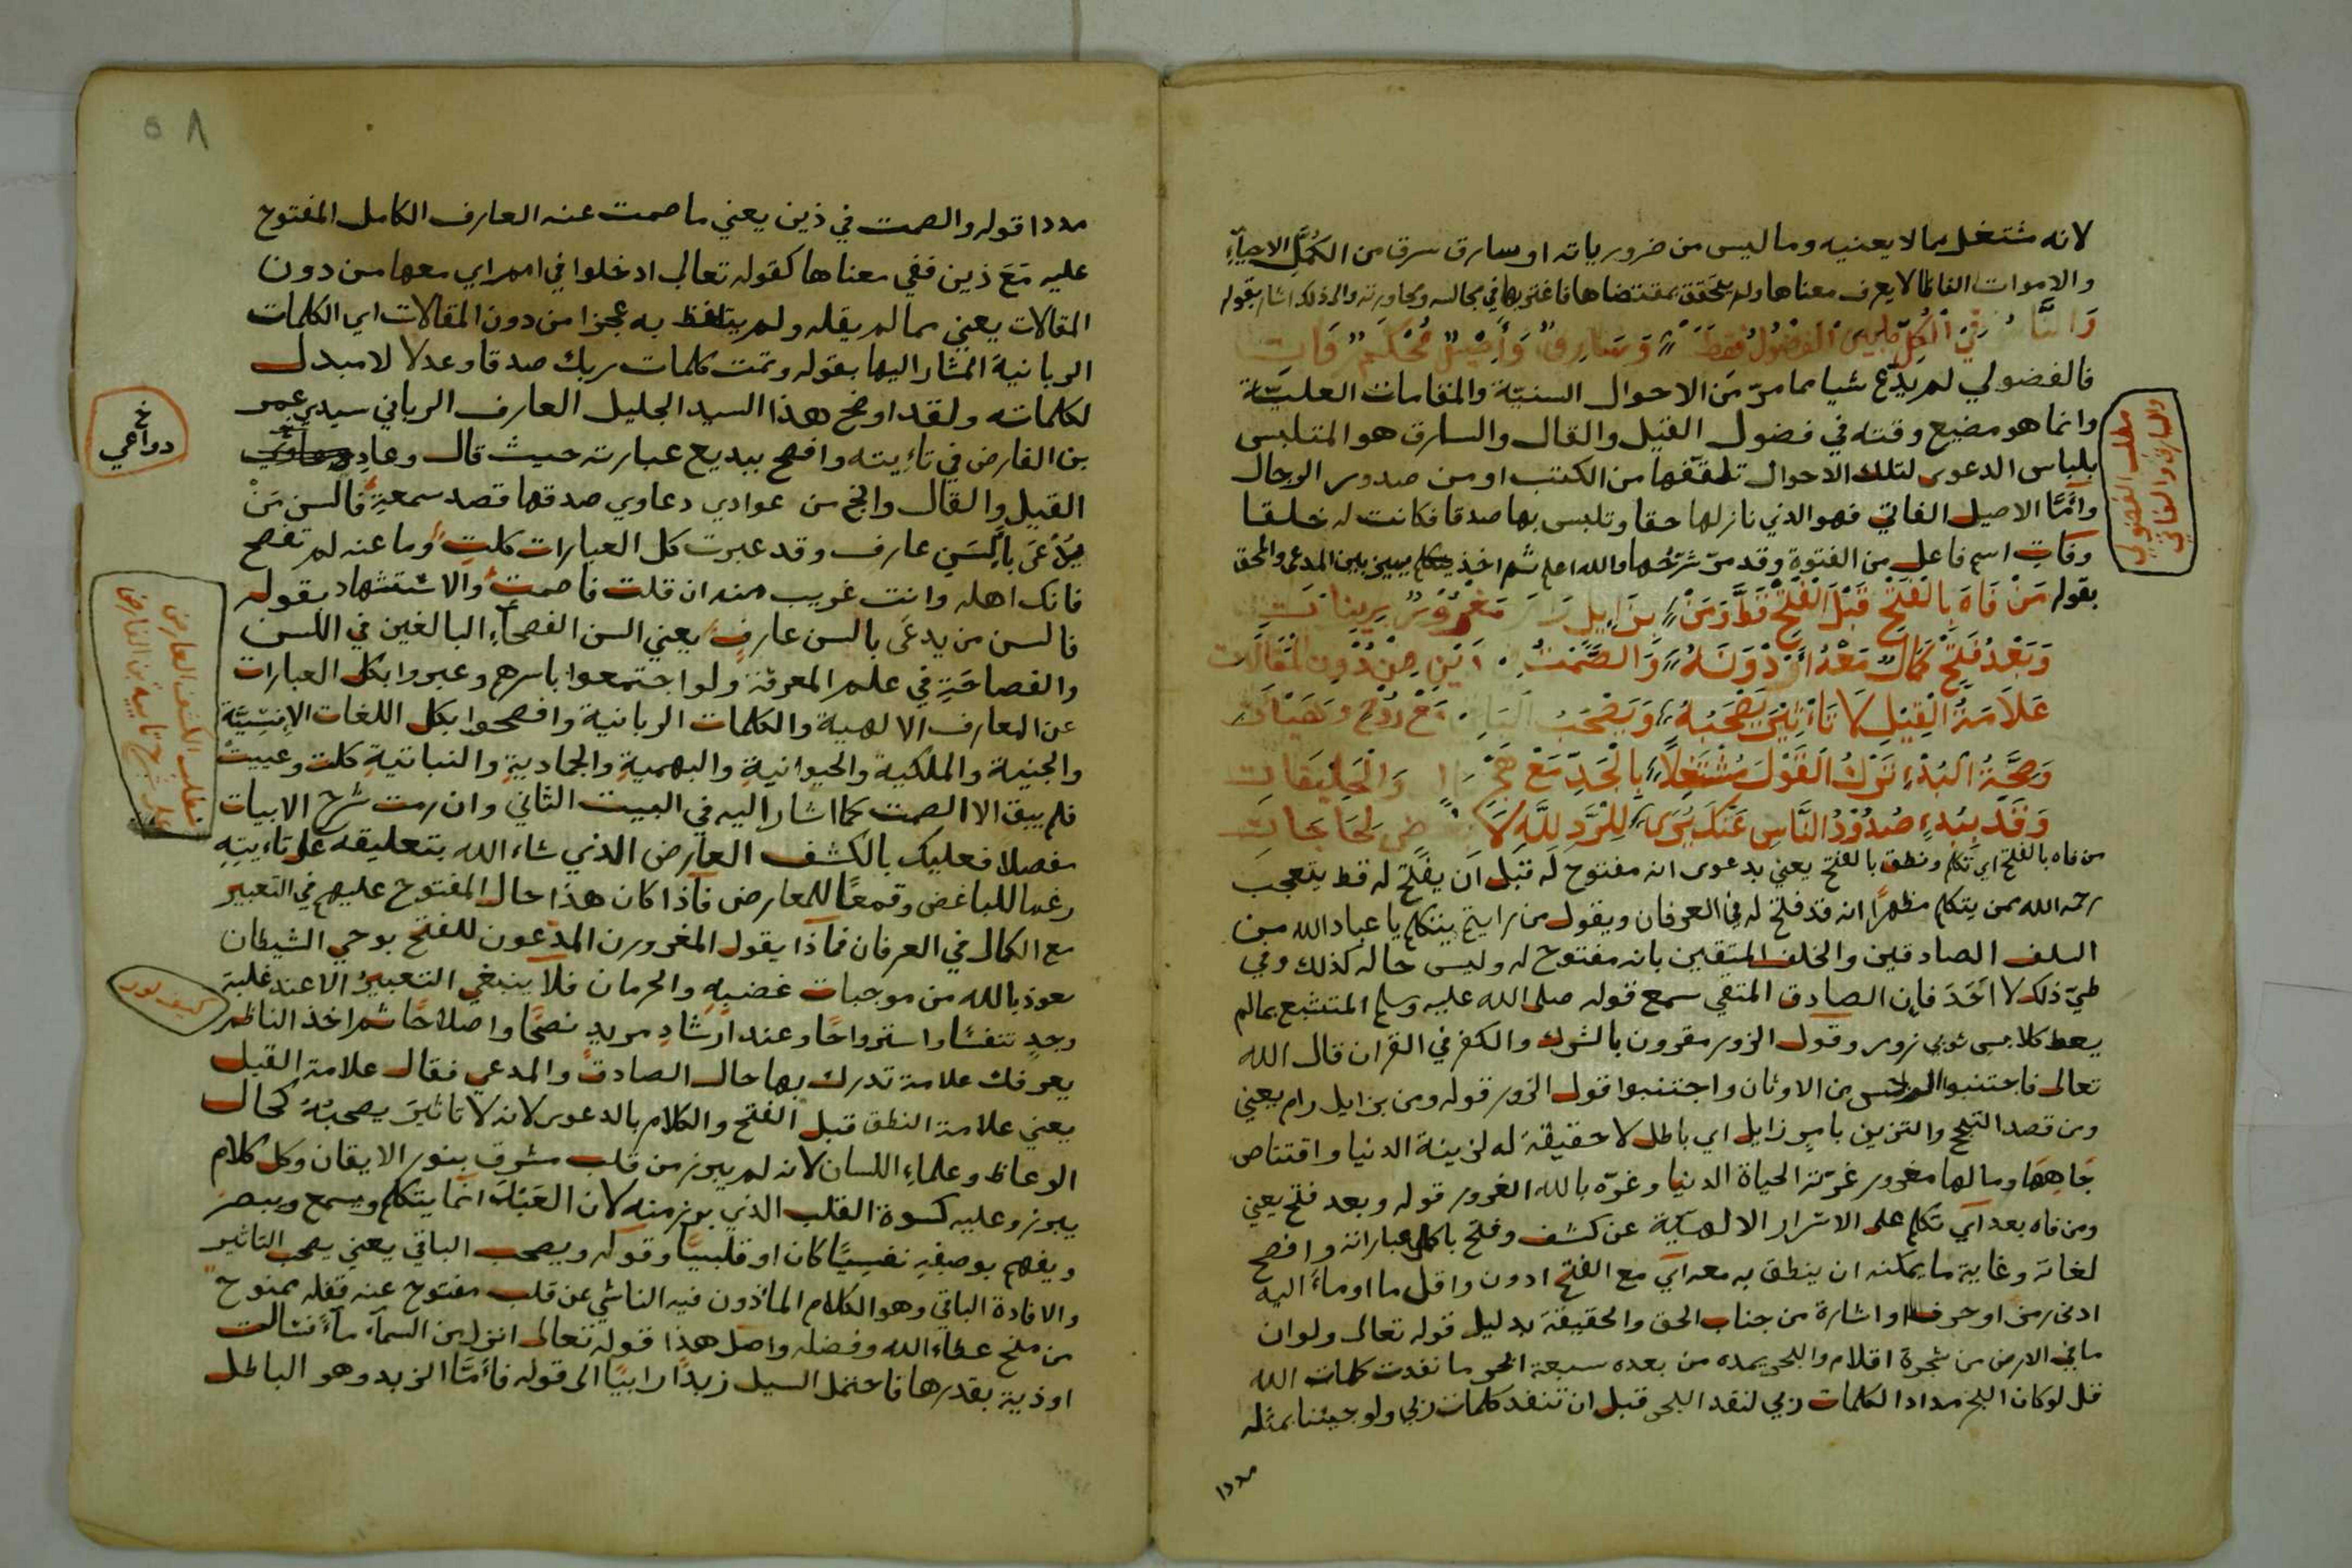 لانه مشتغل بما لا يعنيه وما ليس من ضرورياته او سارق سرق من الكمل الاحياء
والاموات الفاظا لا يعرف معناها ولم يتحقق بمقتضاها فاغتر بها في مجالسه ومحاورته والى ذلك اشار بقوله
في الكل الفضول فقط وسارق واصيل محكم فات
فالفضولي لم يدع شيا مما مر من الاحوال السنية والمقامات العلية
وانما هو مضيع وقته في فضول القيل والقال والسارق هو المتلبس
بلباس الدعوى لتلك الاحوال تلقفها من الكتب او من صدور الرجال
وامّا الاصيل الفاتي فهو الذي نازلها حقا وتلبس بها صدقا فكانت له خلقا
وفات اسم فاعل من الفتوة وقد مرّ شرحها والله اعلم ثم اخذ يميز بين المدعى والمحق
بقوله مَنْ فَاهَ بِالْفَتْحِ قَبْلَ الْفَتْحِ قَطُّ وَمَنْ بزايل رام مغرور بزينات
وَبَعْدُ فَتْحٍ كَمَالٌ مَعْهُ أَوْ دُوْنَهُ وَالصَّمْتُ في ذين مِنْ دُوْنِ الْمَقَالَات
عَلَامَةُ الْقِيْلِ لَا تَاْثِيْرَ يَصْحَبُهُ وَيَصْحَبُ الباقي مع روح وهيآت
وَصِحَّةُ الْبُدْءِ تَرْكُ الْقَوْلِ مُشْتَغِلًا بِالْجَدِّ مَعْ هجر وَالْخَلِيْقَات
وَقَدْ بِبُدْءٍ صُدُوْدُ النَّاسِ عَنْكَ يُرَى لِلرَّدِّ لِلَّهِ لَا لِحَاجَات
من فاه بالفتح اي تكلم ونطق بالفتح يعني بدعوى انه مفتوح له قبل ان يفتح له قط يتعجب
رحمه الله ممن يتكلم مظهرا انه قد فتح له في العرفان ويقول من رايتم يتكلم يا عباد الله من
السلف الصادقين والخلف المتقين بانه مفتوح له وليس حاله كذلك وفي
طيّ ذلك لا احد فان الصادق المتقي سمع قوله صلى الله عليه وسلم المتشبع بما لم
يعط كلابس ثوبي زور وقول الزور مقرون بالشرك والكفر في القرآن قال الله
تعالى فاجتنبوا الرجس من الاوثان واجتنبوا قول الزور قوله ومن بزايل رام يعني
ومن قصد التبجح والتزين بامر زايل اي باطل لا حقيقة له لزينة الدنيا واقتناص
جاهها ومالها مغرور غرّته الحياة الدنيا وغرّه بالله الغرور قوله وبعد فتح يعني
ومن فاه بعد اي تكلم على الاسرار الالهية عن كشف وفتح باكمل عباراته وافصح
لغاته وغاية ما يمكنه ان ينطق به معه اي مع الفتح او دون واقل ما اوماء اليه
ادنى رمز او حرف او اشارة من جناب الحق والحقيقة بدليل قوله تعالى ولو ان
ما في الارض من شجرة اقلام والبحر يمده من بعده سبعة ابحر ما نفدت كلمات الله
قل لو كان البحر مدادا لكلمات ربي لنفد البحر قبل ان تنفد كلمات ربي ولو جئنا بمثله
مددا
مطلب الفضولي
والسارق والفاتي
٥٨
مددا قوله والصمت في ذين يعني ما صمت عنه العارف الكامل المفتوح
عليه مَعَ ذين ففي معناها كقوله تعالى ادخلوا في امم اي معها من دون
المقالات يعني مما لم يقله ولم يتلفظ به عجزا من دون المقالات اي الكلمات
الربانية المشار اليها بقوله وتمت كلمات ربك صدقا وعدلا لا مبدل
لكلماته ولقد اوضح هذا السيد الجليل العارف الرباني سيدي عمر
بن الفارض في تاءيته وافصح ببديع عبارته حيث قال وعاد دعاوي
القيل والقال وانج من عوادي دعاوي صدقها قصد سمعة فالسن مَنْ
يدعى بالسن عارف وقد عبرت كل العبارات كلت وما عنه لم تفصح
فانك اهله وانت غريب منه ان قلت فاصمت والاستشهاد بقوله
فالسن من يدعى بالسن عارف يعني السن الفصحاء البالغين في اللسن
والفصاحة في علم المعرفة ولو اجتمعوا باسرهم وعبروا بكل العبارات
عن المعارف الالهية والكلمات الربانية وافصحوا بكل اللغات الانسيّة
والجنية والملكية والحيوانية والبهمية والجمادية والنباتية كلت وعييت
فلم يبق الا الصمت كما اشار اليه في البيت الثاني وان رمت شرح الابيات
مفصلا فعليك بالكشف العارض الذي شاء الله بتعليقه على تاءيته
رغما للباغض وقمعًا للمعارض فاذا كان هذا حال المفتوح عليهم في التعبير
مع الكمال في العرفان فماذا يقول المغرورن المدّعون للفتح بوحي الشيطان
نعوذ بالله من موجبات غضبه والحرمان فلا ينبغي التعبير الا عند غلبة
وجد تنفسًا واسترواحًا وعند ارشاد مريد نصحًا واصلاحًا ثم اخذ الناظم
يعرفك علامة تدرك بها حال الصادق والمدعي فقال علامة القيل
يعني علامة النطق قبل الفتح والكلام بالدعوى لانه لا تاثير يصحبه كحال
الوعاظ وعلماء اللسان لانه لم يبرز من قلب مشرق بنور الايقان وكل كلام
يبرز وعليه كسوة القلب الذي برز منه لان العبد انما يتكلم ويسمع ويبصر
ويفهم بوصفه نفسيًا كان او قلبيًا وقوله ويصحب الباقي يعني يصحب التاثير
والافادة الباقي وهو الكلام الماذون فيه الناشي عن قلب مفتوح عنه قفله ممنوح
من منح عطاء الله وفضله واصل هذا قوله تعالى انزل من السماء ماءً فسالت
اودية بقدرها فاحتمل السيل زبدًا رابيًا الى قوله فأمّا الزبد وهو الباطل
خ
دواعي
مطلب الكشف العارض
على شرح تاءية بن الفارض